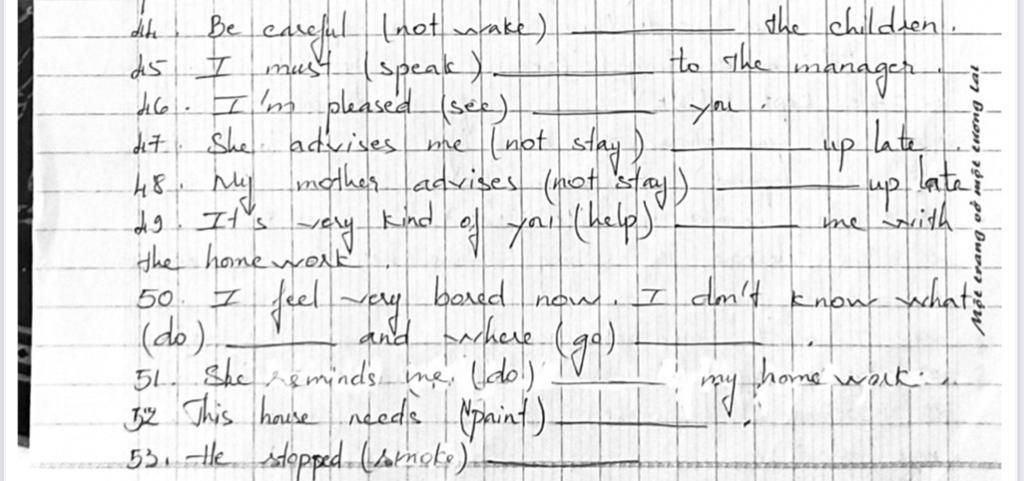 44. Be careful (not wake) ________ the children.
45 I must (speak) ________ to the manager.
46. I'm pleased (see) ________ you.
47. She advises me (not stay) ________ up late.
48. My mother advises (not stay) ________ up late
49. It's very kind of you (help) ________ me with
the home work.
50. I feel very bored now. I don't know what
(do) ________ and where (go) ________.
51. She reminds me (do) ________ my home work.
52 This house needs (paint) ________.
53. He stopped (smoke) ________
Một trang vở một tương lai